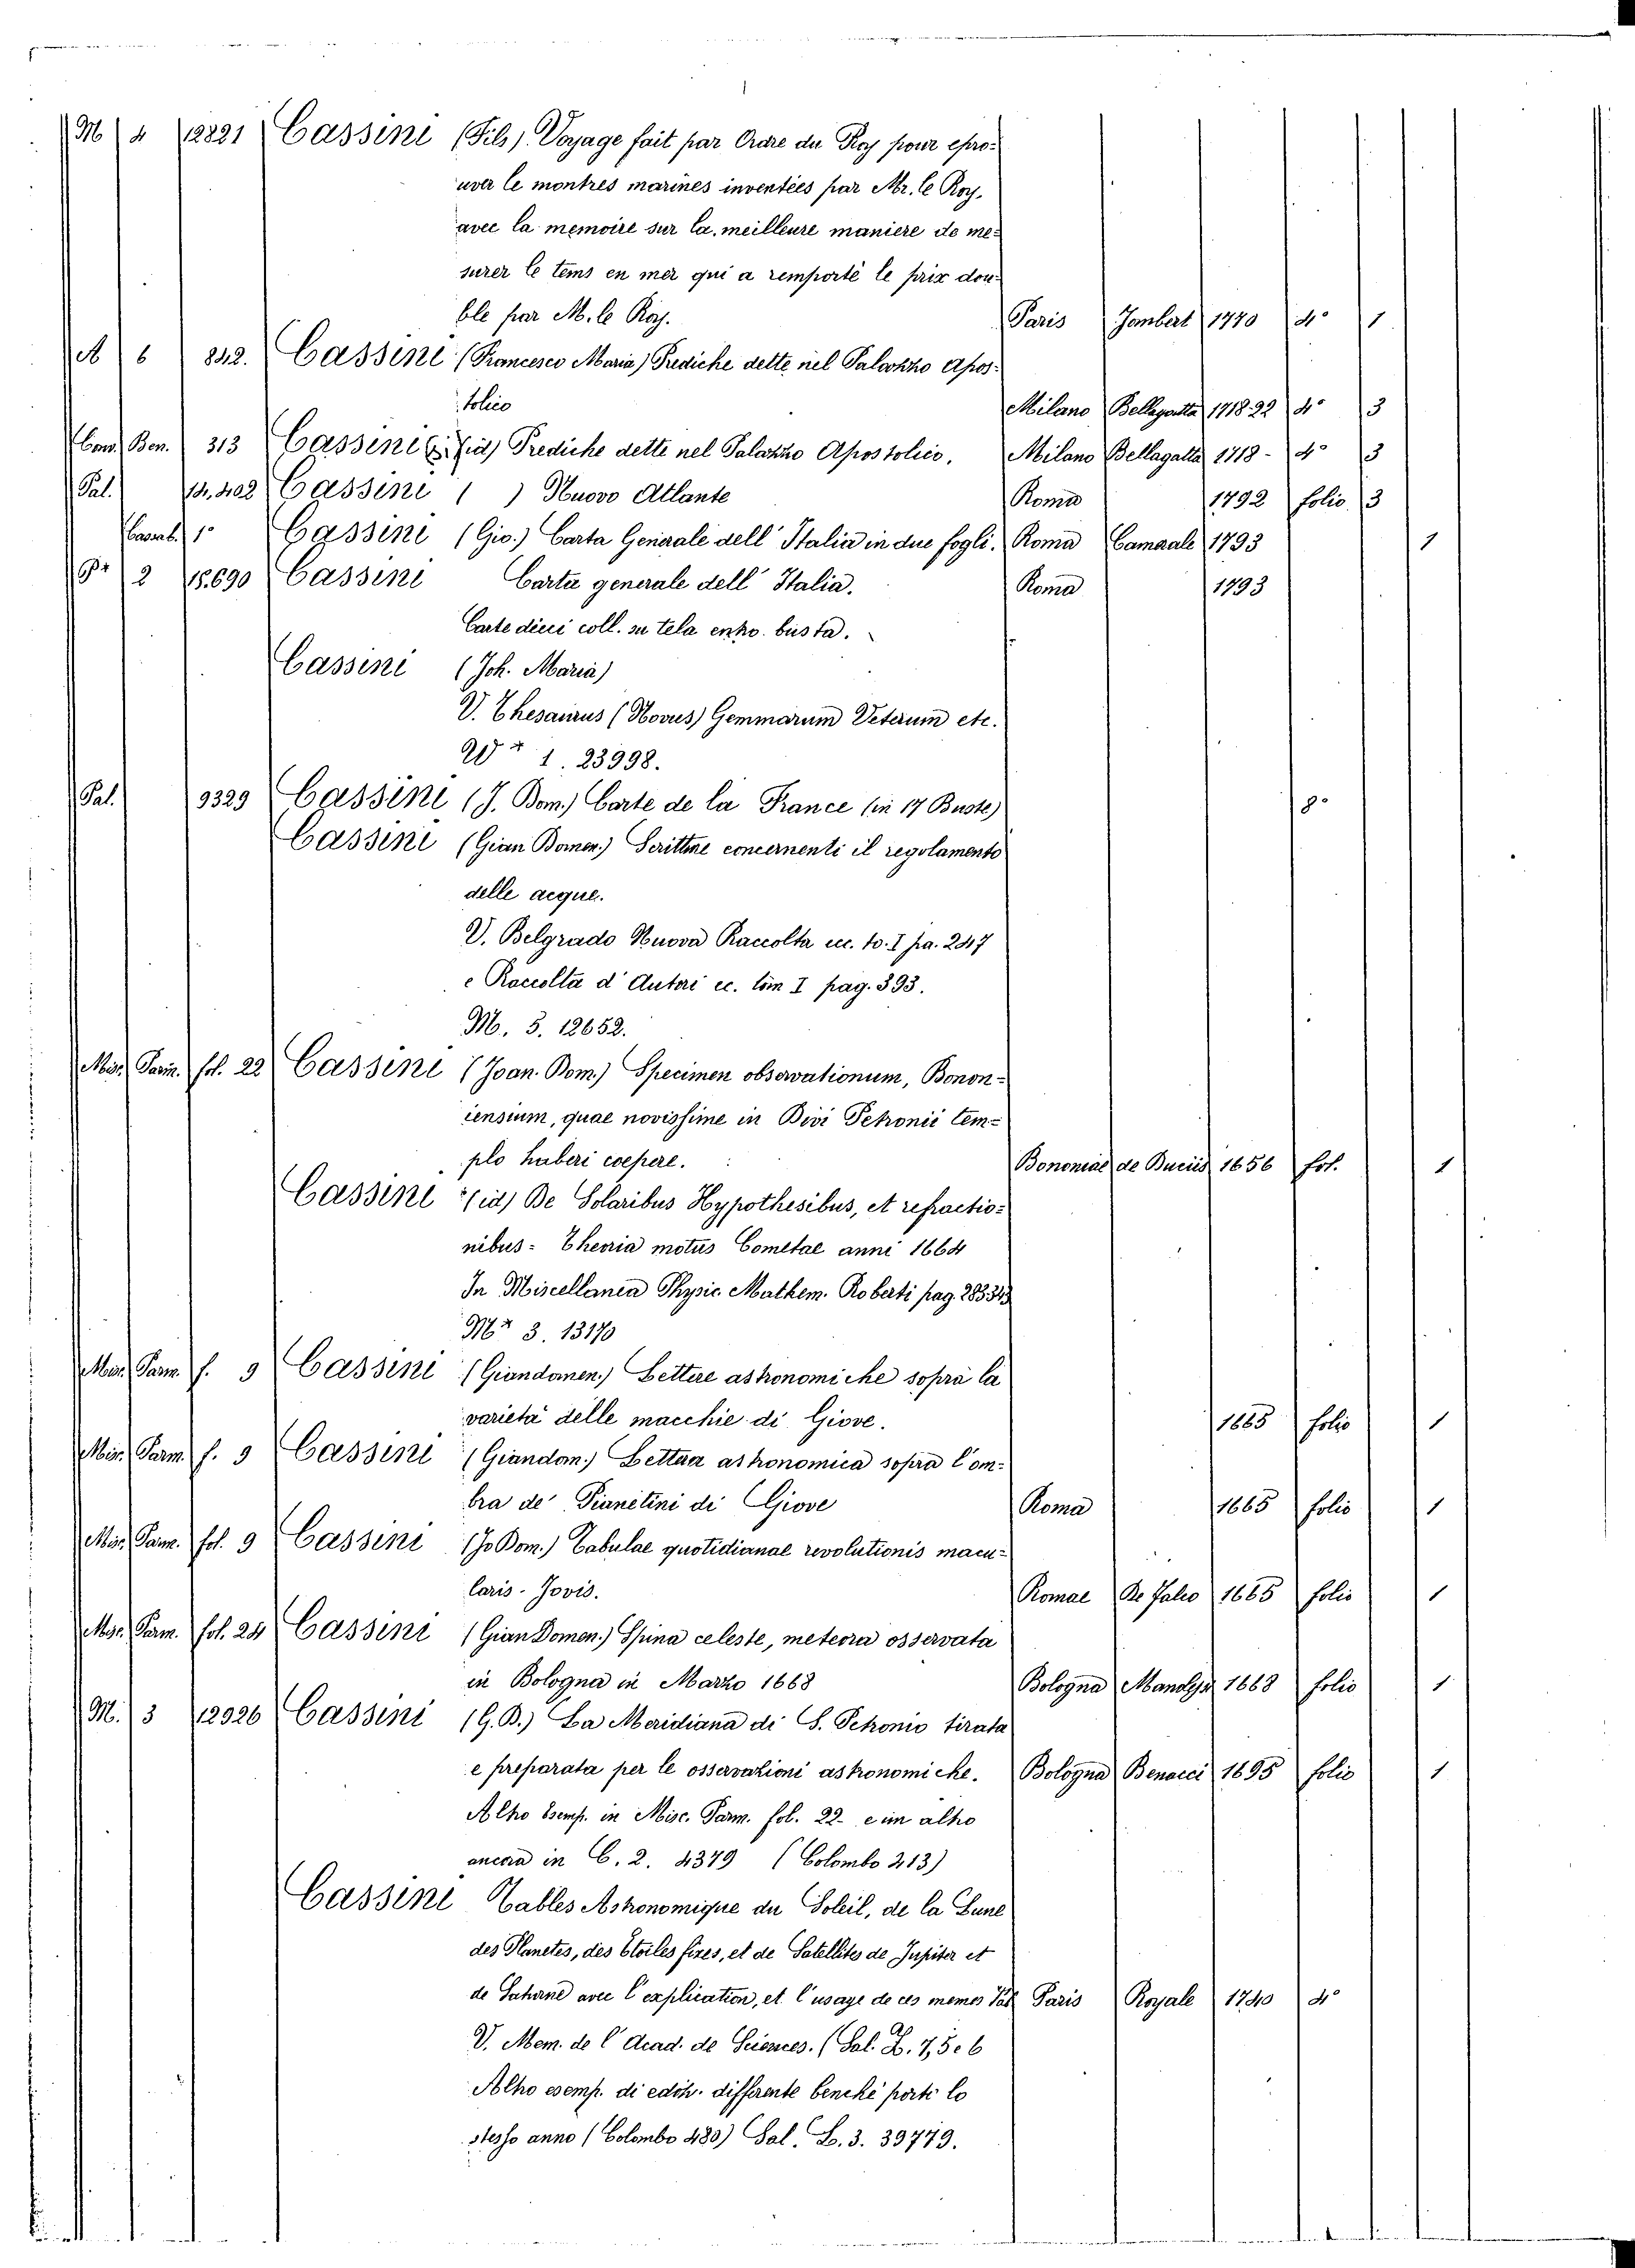 M 4 12821 Cassini (Fils) Voyage fait par Ordre du Roy pour epro-
uver le montres marines inventées par Mr. le Roy.
avec la memoire sur la meilleure maniere de me-
surer le tems en mer qui a remporté le prix dou-
ble par M. le Roy. Paris Jombert 1770 4° 1
A 6 842. Cassini (Francesco Maria) Prediche dette nel Palazzo Apos-
tolico Milano Bellagatta 1718-22 4° 3
Cons. Ben. 313 Cassini (id) Prediche dette nel Palazzo Apostolico. Milano Bellagatta 1718- 4° 3
Pal. 14.402 Cassini ( ) Nuovo Atlante Roma 1792 folio 3
Casanat. 1° Cassini (Gio.) Carta Generale dell' Italia in due fogli. Roma Camerale 1793 1
2 15.690 Cassini Carta generale dell' Italia. Roma 1793
Carte dieci coll. su tela entro busta.
Cassini (Joh. Maria)
V. Thesaurus (Novus) Gemmarum Veterum etc.
1. 23998.
Pal. 9329 Cassini (J. Dom.) Carte de la France (in 17 Buste) 8°
Cassini (Gian Domen.) Scritture concernenti il regolamento
delle acque.
V. Belgrado Nuova Raccolta ecc. to. I pa. 247
e Raccolta d' Autori ec. tom I pag. 393.
M. 5. 12652.
Misc. Parm. fol. 22 Cassini (Joan. Dom.) Specimen observationum, Bonon-
iensium, quae novissime in Divi Petronii tem-
plo haberi coepere. Bononiae de Duciis 1656 fol. 1
Cassini (id) De Solaribus Hypothesibus, et refractio-
nibus- Theoria motus Cometae anni 1664
In Miscellanea Physic. Mathem. Roberti pag. 283.313
M* 3. 13170
Misc. Parm. f. 9 Cassini (Giandomen.) Lettere astronomiche sopra la
varietà delle macchie di Giove. 1665 folio 1
Misc. Parm. f. 9 Cassini (Giandom.) Lettera astronomica sopra l'om-
bra de' Pianetini di Giove Roma 1665 folio 1
Misc. Parm. fol. 9 Cassini (Jo Dom.) Tabulae quotidianae revolutionis macu-
laris- Jovis. Romae De Falco 1665 folio 1
Misc. Parm. fol. 24 Cassini (Gian Domen.) Spina celeste, meteora osservata
in Bologna in Marzo 1668 Bologna Manolessi 1668 folio 1
M. 3 12926 Cassini (G. D.) La Meridiana di S. Petronio tirata
e preparata per le osservazioni astronomiche. Bologna Benacci 1695 folio 1
Altro Esemp. in Misc. Parm. fol. 22- e un altro
ancora in C. 2. 4379 (Colombo 213)
Cassini Tables Astronomique du Soleil, de la Lune
des Planetes, des Etoiles fixes, et de Satellites de Jupiter et
de Saturne avec l'explication, et l'usage de ces memes Tab Paris Royale 1740 4°
V. Mem. de l' Acad. de Sciences. (Sal. L. 7, 5 e 6
Altro esemp. di ediz. differente benchè porti lo
stesso anno (Colombo 480) Sal. L. 3. 39779.